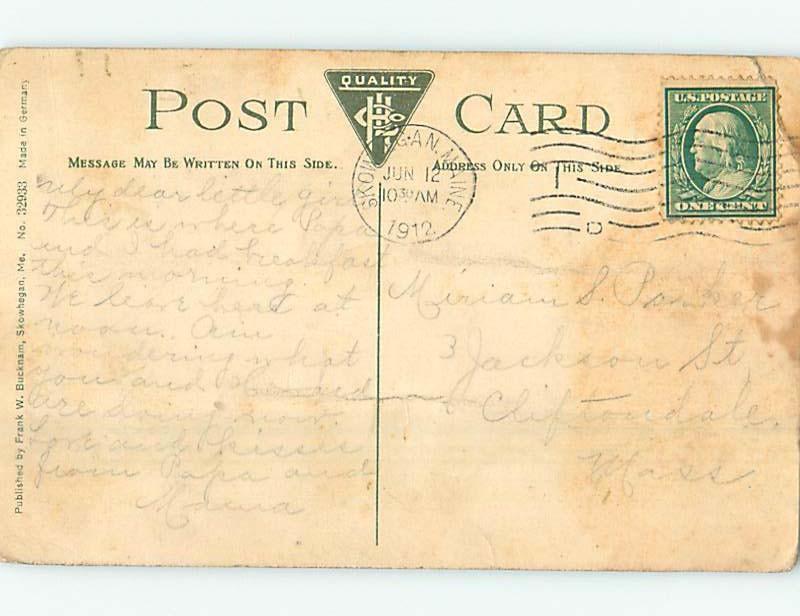 QUALITY
POST CARD
MESSAGE MAY BE WRITTEN ON THIS SIDE.
ADDRESS ONLY ON THIS SIDE
U.S. POSTAGE
ONE CENT
SKOWHEGAN, MAINE
JUN 12
10 30 AM
1912
My dear little girl
This is where Papa
and I had breakfast
this morning.
We leave here at
noon. Am
wondering what
you and
are doing now.
Love and kisses
from Papa and
Mama
Miriam S. Parker
3 Jackson St
Cliftondale,
Mass.
Published by Frank W. Bucknam, Skowhegan, Me. No. 32933 Made in Germany